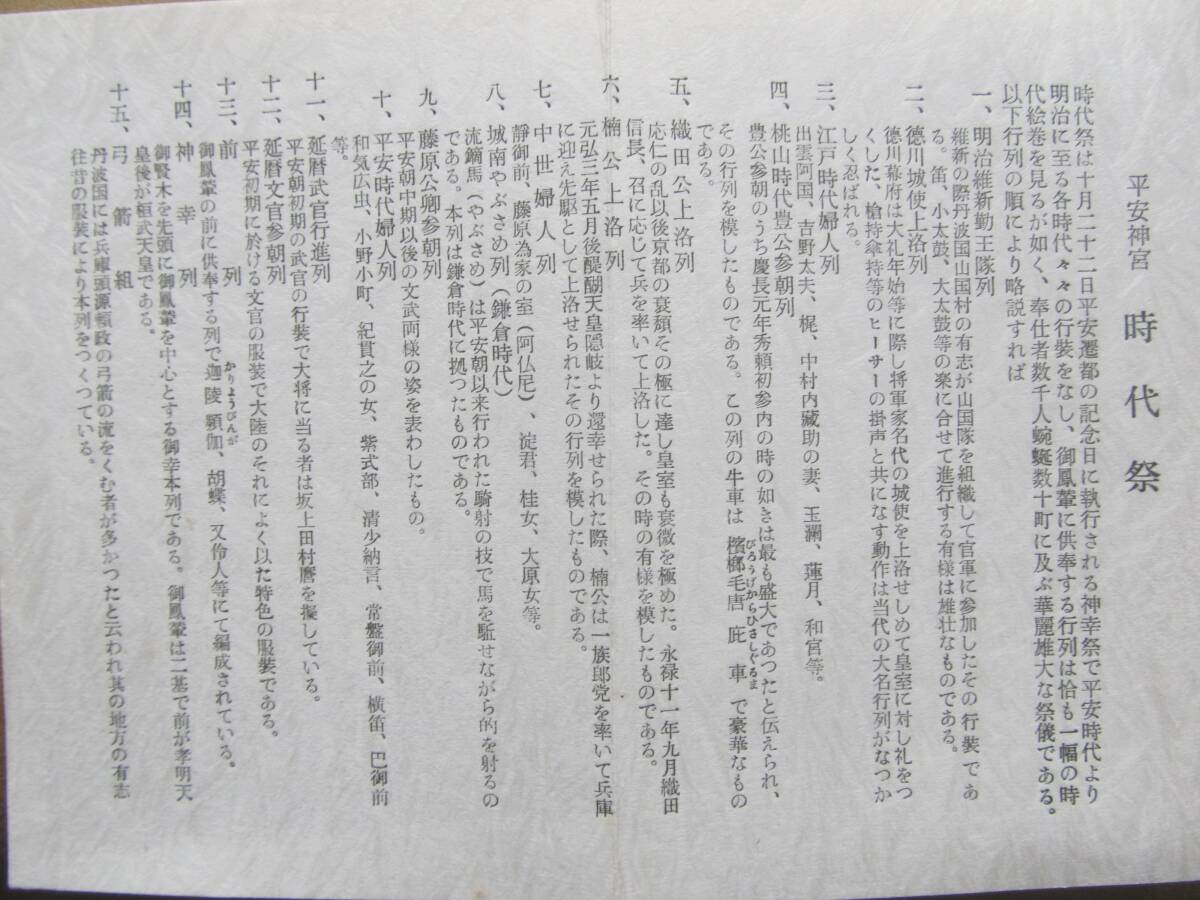 平安神宮　時代祭
時代祭は十月二十二日平安遷都の記念日に執行される神幸祭で平安時代より
明治に至る各時代々々の行装をなし、御鳳輦に供奉する行列は恰も一幅の時
代絵巻を見るが如く、奉仕者数千人蜿蜒数十町に及ぶ華麗雄大な祭儀である。
以下行列の順により略説すれば
一、明治維新勤王隊列
維新の際丹波国山国村の有志が山国隊を組織して官軍に参加したその行装であ
る。笛、小太鼓、大太鼓等の楽に合せて進行する有様は雄壮なものである。
二、徳川城使上洛列
徳川幕府は大礼年始等に際し将軍家名代の城使を上洛せしめて皇室に対し礼をつ
くした、槍持傘持等のヒーサーの掛声と共になす動作は当代の大名行列がなつか
しく忍ばれる。
三、江戸時代婦人列
出雲阿国、吉野太夫、梶、中村内蔵助の妻、玉瀾、蓮月、和宮等。
四、桃山時代豊公参朝列
豊公参朝のうち慶長元年秀頼初参内の時の如きは最も盛大であつたと伝えられ、
その行列を模したものである。この列の牛車は檳榔毛唐庇車で豪華なもの
びろうげからひさしぐるま
である。
五、織田公上洛列
応仁の乱以後京都の衰頽その極に達し皇室も衰微を極めた。永禄十一年九月織田
信長、召に応じて兵を率いて上洛した。その時の有様を模したものである。
六、楠公上洛列
元弘三年五月後醍醐天皇隠岐より還幸せられた際、楠公は一族郎党を率いて兵庫
に迎え先駆として上洛せられたその行列を模したものである。
七、中世婦人列
靜御前、藤原為家の室（阿仏尼）、淀君、桂女、大原女等。
八、城南やぶさめ列（鎌倉時代）
流鏑馬（やぶさめ）は平安朝以来行われた騎射の技で馬を駈せながら的を射るの
である。本列は鎌倉時代に拠つたものである。
九、藤原公卿参朝列
平安朝中期以後の文武両様の姿を表わしたもの。
十、平安時代婦人列
和気広虫、小野小町、紀貫之の女、紫式部、清少納言、常盤御前、横笛、巴御前
等。
十一、延暦武官行進列
平安朝初期の武官の行装で大将に当る者は坂上田村麿を擬している。
十二、延暦文官参朝列
平安初期に於ける文官の服装で大陸のそれによく以た特色の服装である。
十三、前列
御鳳輦の前に供奉する列で迦陵頻伽、胡蝶、又伶人等にて編成されている。
かりようびんが
十四、神幸列
御賢木を先頭に御鳳輦を中心とする御幸本列である。御鳳輦は二基で前が孝明天
皇後が桓武天皇である。
十五、弓箭組
丹波国には兵庫頭源頼政の弓箭の流をくむ者が多かつたと云われ其の地方の有志
往昔の服装により本列をつくつている。